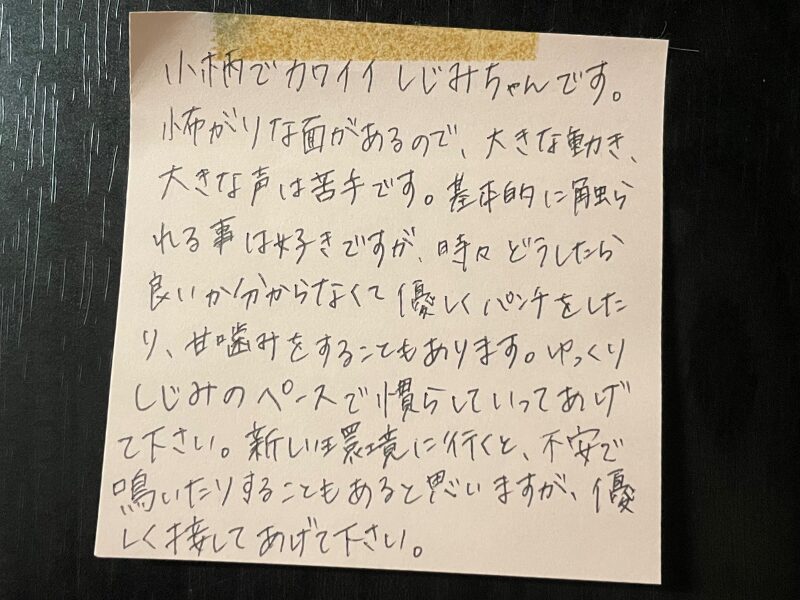 小柄でカワイイしじみちゃんです。
怖がりな面があるので、大きな動き、
大きな声は苦手です。基本的に触ら
れる事は好きですが、時々どうしたら
良いか分からなくて優しくパンチをした
り、甘噛みをすることもあります。ゆっくり
しじみのペースで慣らしていってあげ
て下さい。新しい環境に行くと、不安で
鳴いたりすることもあると思いますが、優
しく接してあげて下さい。